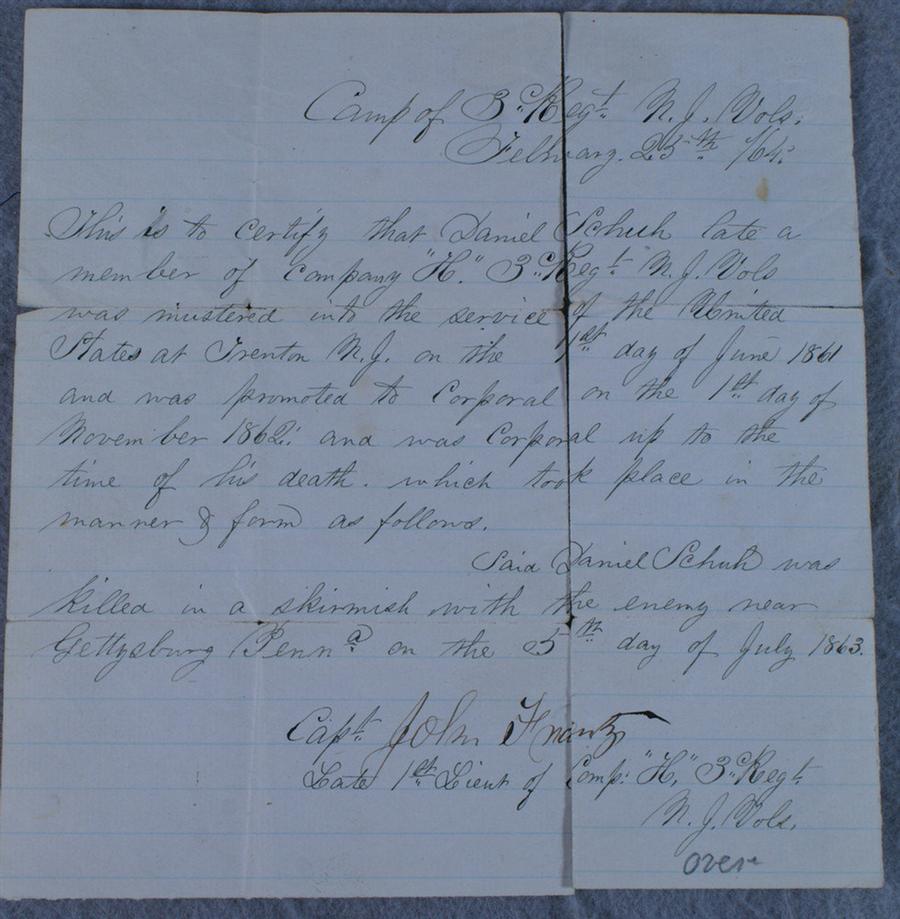 Camp of 3d Regt. N. J. Vols.
February. 25th /64.
This is to certify that Daniel Schuh late a
member of Company "H." 3d Regt. N. J. Vols
was mustered into the service of the United
States at Trenton N. J. on the 1st day of June 1861
and was promoted to Corporal on the 1st day of
November 1862. and was Corporal up to the
time of his death. which took place in the
manner & form as follows.
Said Daniel Schuh was
killed in a skirmish with the enemy near
Gettysburg Penna. on the 5th day of July 1863.
Capt. John Frantz
Late 1st Lieut of Comp. "H," 3d Regt.
N. J. Vols.
over